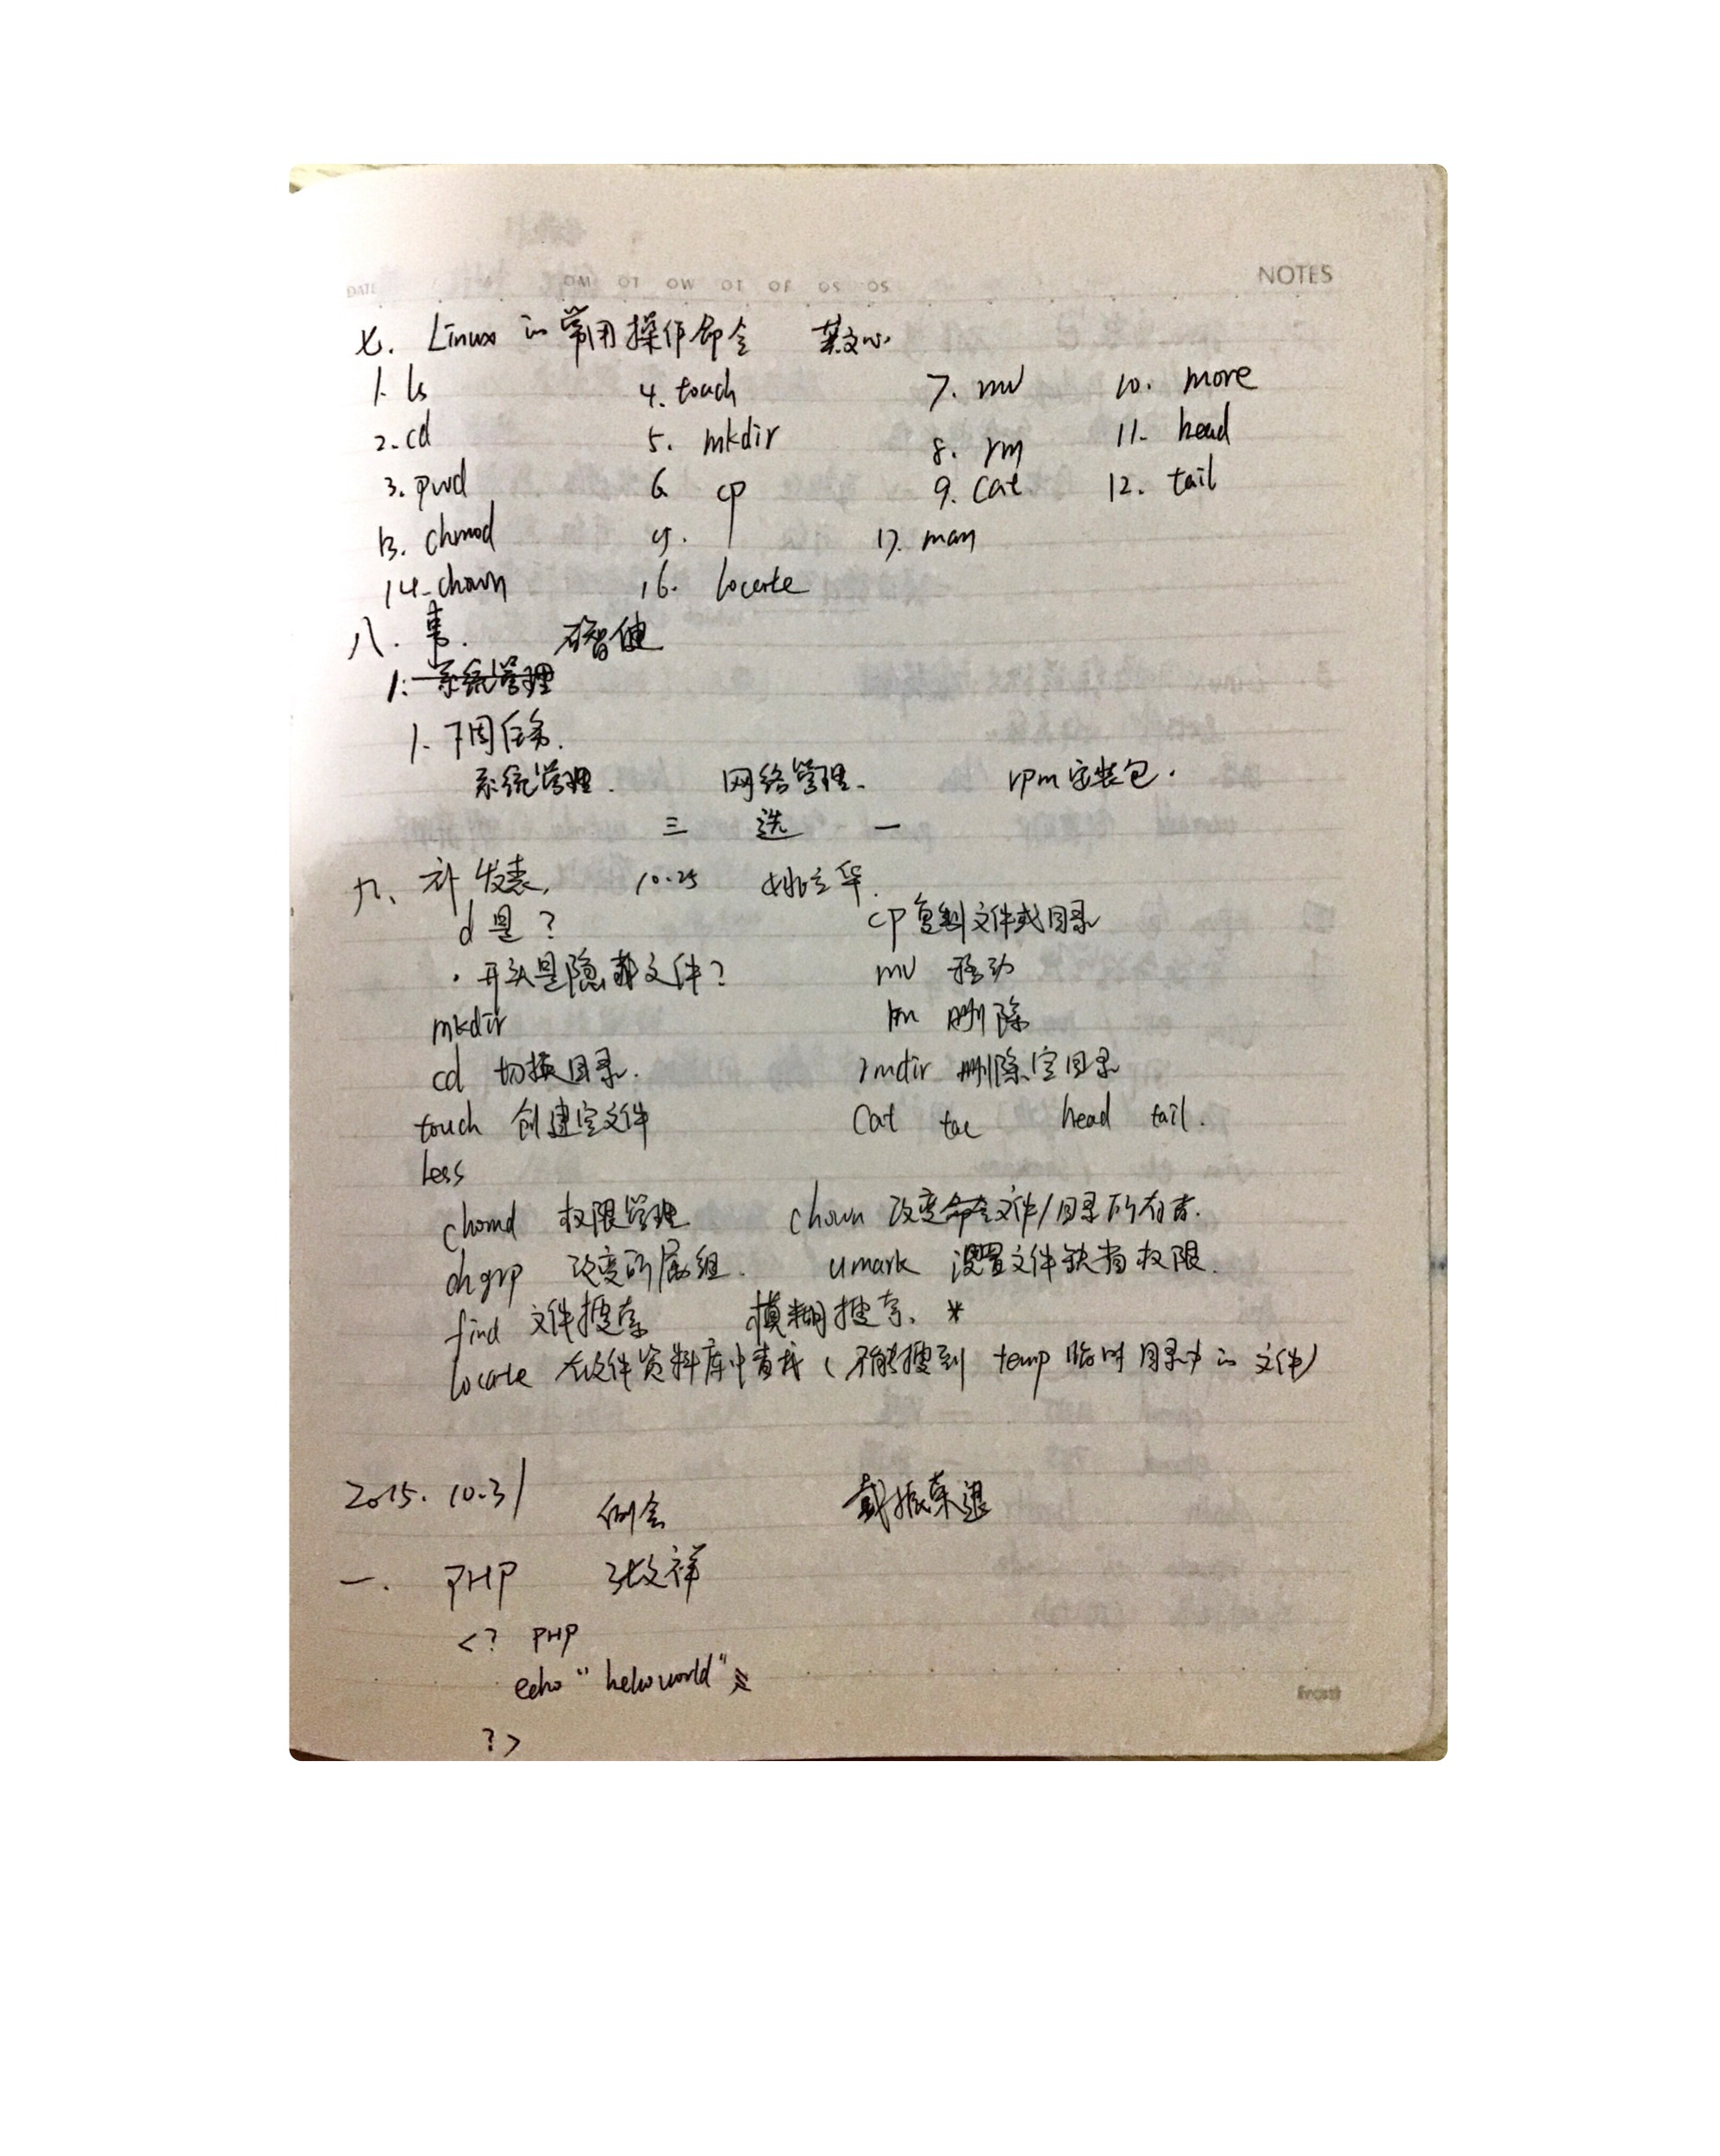 DATE MO TO WO TO FO SO SO NOTES
七. Linux 的常用操作命令
1. ls 4. touch 7. mv 10. more
2. cd 5. mkdir 8. rm 11. head
3. pwd 6. cp 9. cat 12. tail
13. chmod 15. 17. man
14. chown 16. locate
八. 事. 智健
1. 系统管理
1. 下周任务.
系统管理. 网络管理. rpm安装包.
三 选 一
九、补发表, 10.25 姚立华.
d是? cp复制文件或目录
.开头是隐藏文件? mv 移动
mkdir rm 删除
cd 切换目录. rmdir 删除空目录
touch 创建空文件 cat tac head tail.
less
chomd 权限管理 chown 改变命令文件/目录所有者.
chgrp 改变所属组. umark 设置文件缺省权限.
find 文件搜索 模糊搜索. *
locate 在文件资料库中查找(不能搜到 temp 临时目录中的文件)
2015. 10.31 例会 戴振荣退
一. PHP 张文祥
<? PHP
echo "helloworld";
?>